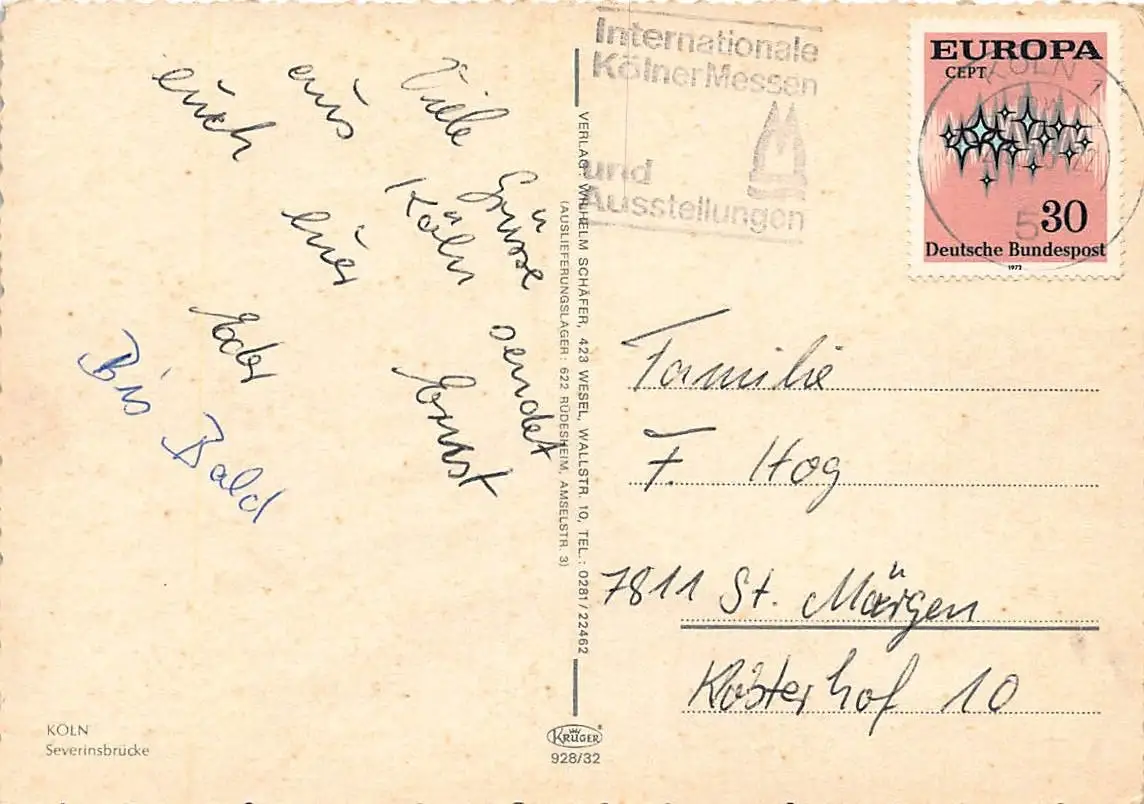 Internationale
Kölner Messen
und
Ausstellungen
EUROPA
CEPT
30
Deutsche Bundespost
1972
KÖLN
5
Viele Grüsse sendet
aus Köln Ernst
euch
Bis Bald
VERLAG: WILHELM SCHÄFER, 423 WESEL, WALLSTR. 10, TEL.: 0281/22462
(AUSLIEFERUNGSLAGER: 622 RÜDESHEIM, AMSELSTR. 3)
Familie
F. Hog
7811 St. Märgen
Klosterhof 10
KÖLN
Severinsbrücke
KRÜGER
928/32